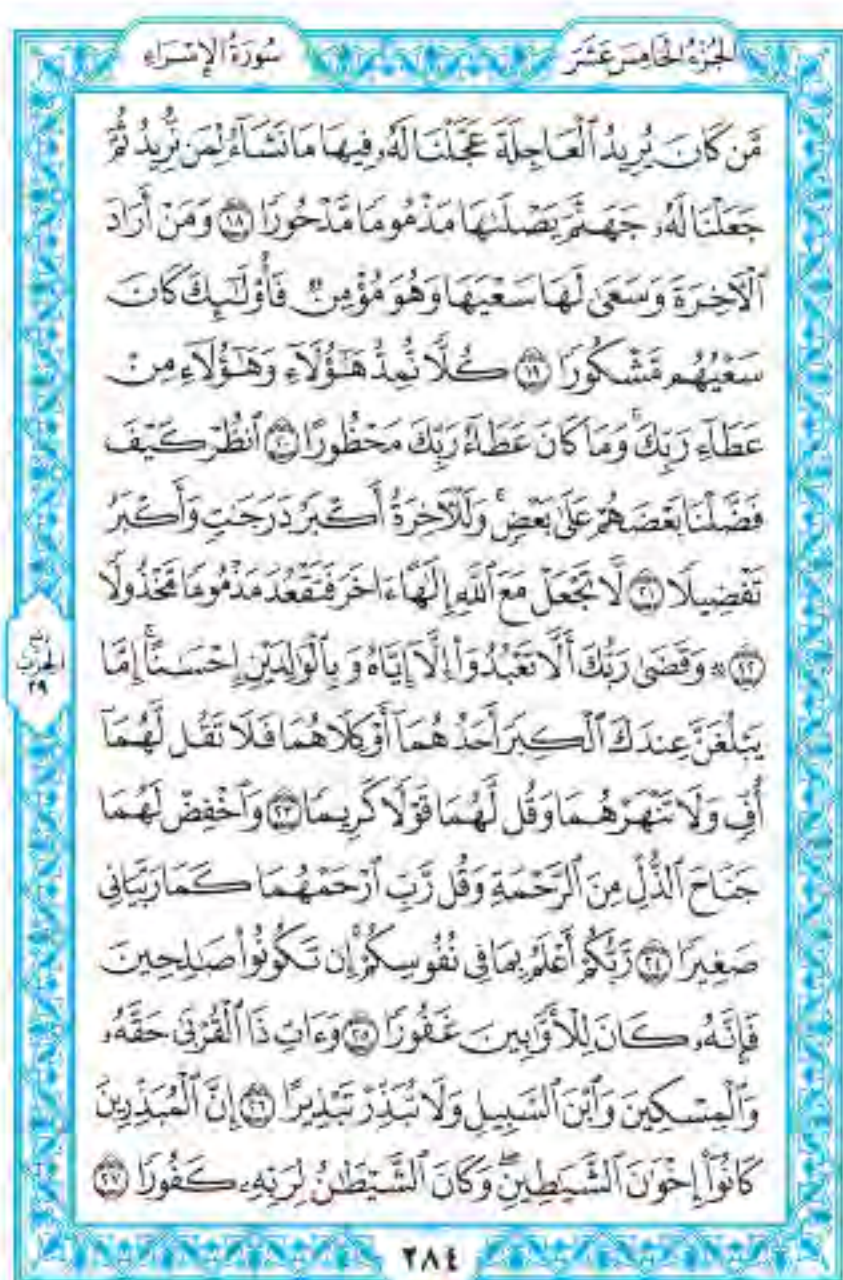 الجُزْءُ الخَامِسَ عَشَرَ
سُورَةُ الإِسْرَاءِ
مَّن كَانَ يُرِيدُ ٱلْعَاجِلَةَ عَجَّلْنَا لَهُۥ فِيهَا مَا نَشَآءُ لِمَن نُّرِيدُ ثُمَّ
جَعَلْنَا لَهُۥ جَهَنَّمَ يَصْلَىٰهَا مَذْمُومًا مَّدْحُورًا ١٨ وَمَنْ أَرَادَ
ٱلْأَخِرَةَ وَسَعَىٰ لَهَا سَعْيَهَا وَهُوَ مُؤْمِنٌ فَأُو۟لَـٰٓئِكَ كَانَ
سَعْيُهُم مَّشْكُورًا ١٩ كُلًّا نُّمِدُّ هَـٰٓؤُلَآءِ وَهَـٰٓؤُلَآءِ مِنْ
عَطَآءِ رَبِّكَ ۚ وَمَا كَانَ عَطَآءُ رَبِّكَ مَحْظُورًا ٢٠ ٱنظُرْ كَيْفَ
فَضَّلْنَا بَعْضَهُمْ عَلَىٰ بَعْضٍ ۚ وَلَلْأَخِرَةُ أَكْبَرُ دَرَجَـٰتٍ وَأَكْبَرُ
تَفْضِيلًا ٢١ لَّا تَجْعَلْ مَعَ ٱللَّهِ إِلَـٰهًا ءَاخَرَ فَتَقْعُدَ مَذْمُومًا مَّخْذُولًا
٢٢ ۞ وَقَضَىٰ رَبُّكَ أَلَّا تَعْبُدُوٓا۟ إِلَّآ إِيَّاهُ وَبِٱلْوَٰلِدَيْنِ إِحْسَـٰنًا ۚ إِمَّا
يَبْلُغَنَّ عِندَكَ ٱلْكِبَرَ أَحَدُهُمَآ أَوْ كِلَاهُمَا فَلَا تَقُل لَّهُمَآ
أُفٍّ وَلَا تَنْهَرْهُمَا وَقُل لَّهُمَا قَوْلًا كَرِيمًا ٢٣ وَٱخْفِضْ لَهُمَا
جَنَاحَ ٱلذُّلِّ مِنَ ٱلرَّحْمَةِ وَقُل رَّبِّ ٱرْحَمْهُمَا كَمَا رَبَّيَانِى
صَغِيرًا ٢٤ رَّبُّكُمْ أَعْلَمُ بِمَا فِى نُفُوسِكُمْ ۚ إِن تَكُونُوا۟ صَـٰلِحِينَ
فَإِنَّهُۥ كَانَ لِلْأَوَّٰبِينَ غَفُورًا ٢٥ وَءَاتِ ذَا ٱلْقُرْبَىٰ حَقَّهُۥ
وَٱلْمِسْكِينَ وَٱبْنَ ٱلسَّبِيلِ وَلَا تُبَذِّرْ تَبْذِيرًا ٢٦ إِنَّ ٱلْمُبَذِّرِينَ
كَانُوٓا۟ إِخْوَٰنَ ٱلشَّيَـٰطِينِ ۖ وَكَانَ ٱلشَّيْطَـٰنُ لِرَبِّهِۦ كَفُورًا ٢٧
ربع
الحزب
٢٩
٢٨٤